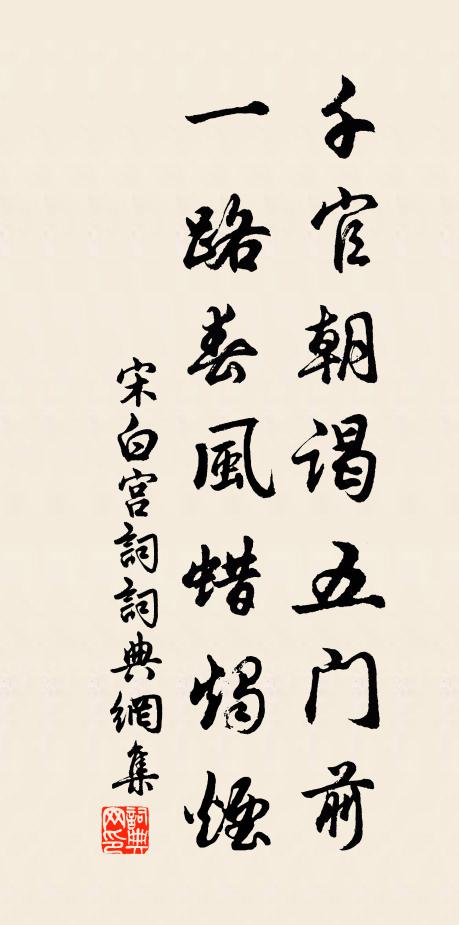 千官朝謁五門前
一路春風蜡燭煙
宋白宮詞詞典網集
詞典网印